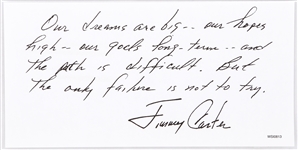 Our dreams are big-- our hopes
high-- our goals long-term-- and
the path is difficult. But
the only failure is not to try.
Jimmy Carter